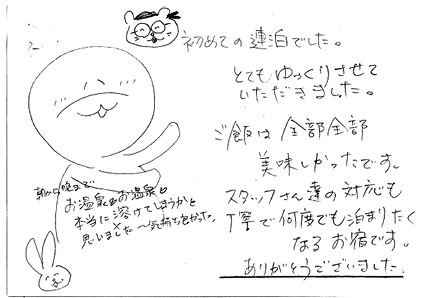 初めての連泊でした。
とてもゆっくりさせて
いただきました。
ご飯は全部全部
美味しかったです。
スタッフさん達の対応も
丁寧で何度でも泊まりたく
なるお宿です。
ありがとうございました。
朝から晩まで
お温泉お温泉と
本当に溶けてしまうかと
思いました 〜気持ち良かった。